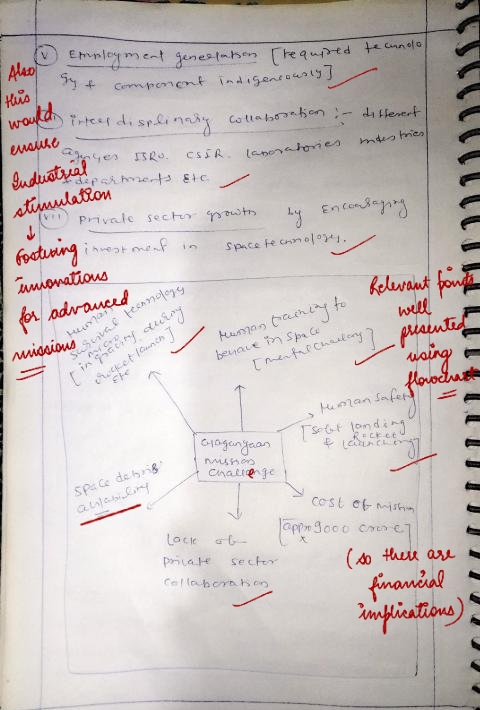 (v) Employment generation [required technolo
gy & component indigenously]
Also
this
would
ensure
Industrial
stimulation
↓
Fostering
innovations
for advanced
missions
interdisplinary collaboration :- different
agencies ISRO. CSSR. laboratories industries
& departments etc.
(vii) Private sector growth by Encouraging
investment in space technology.
Relevant points
well
presented
using
flowchart
Human
Survival technology
[in micro gravity, during
rocket launch]
etc
Human training to
behave in space
[mental]
Human safety
[soft landing
& Rocket
launching]
Gaganyaan
mission
challenge
space debris
availability
cost of mission
[appx 9000 crore]
Lack of
private sector
collaboration
(so there are
financial
implications)